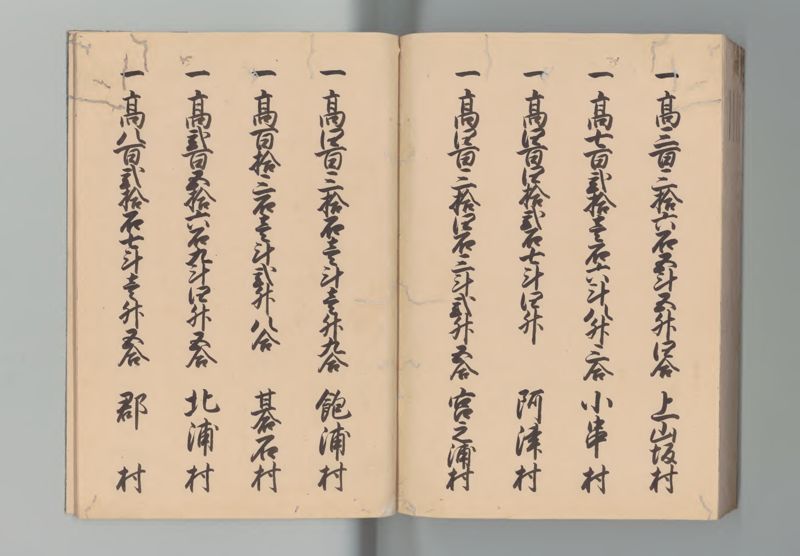 一高三百三拾六石五斗五升四合 上山坂村
一高七百弐拾壱石六斗八升三合 小串村
一高四百四拾弐石七斗四升 阿津村
一高四百三拾四石三斗弐升五合 宮之浦村
一高四百三拾石壱斗壱升九合 飽浦村
一高百拾三石壱斗弐升八合 碁石村
一高弐百五拾六石九斗四升五合 北浦村
一高八百弐拾石七斗壱升五合 郡村